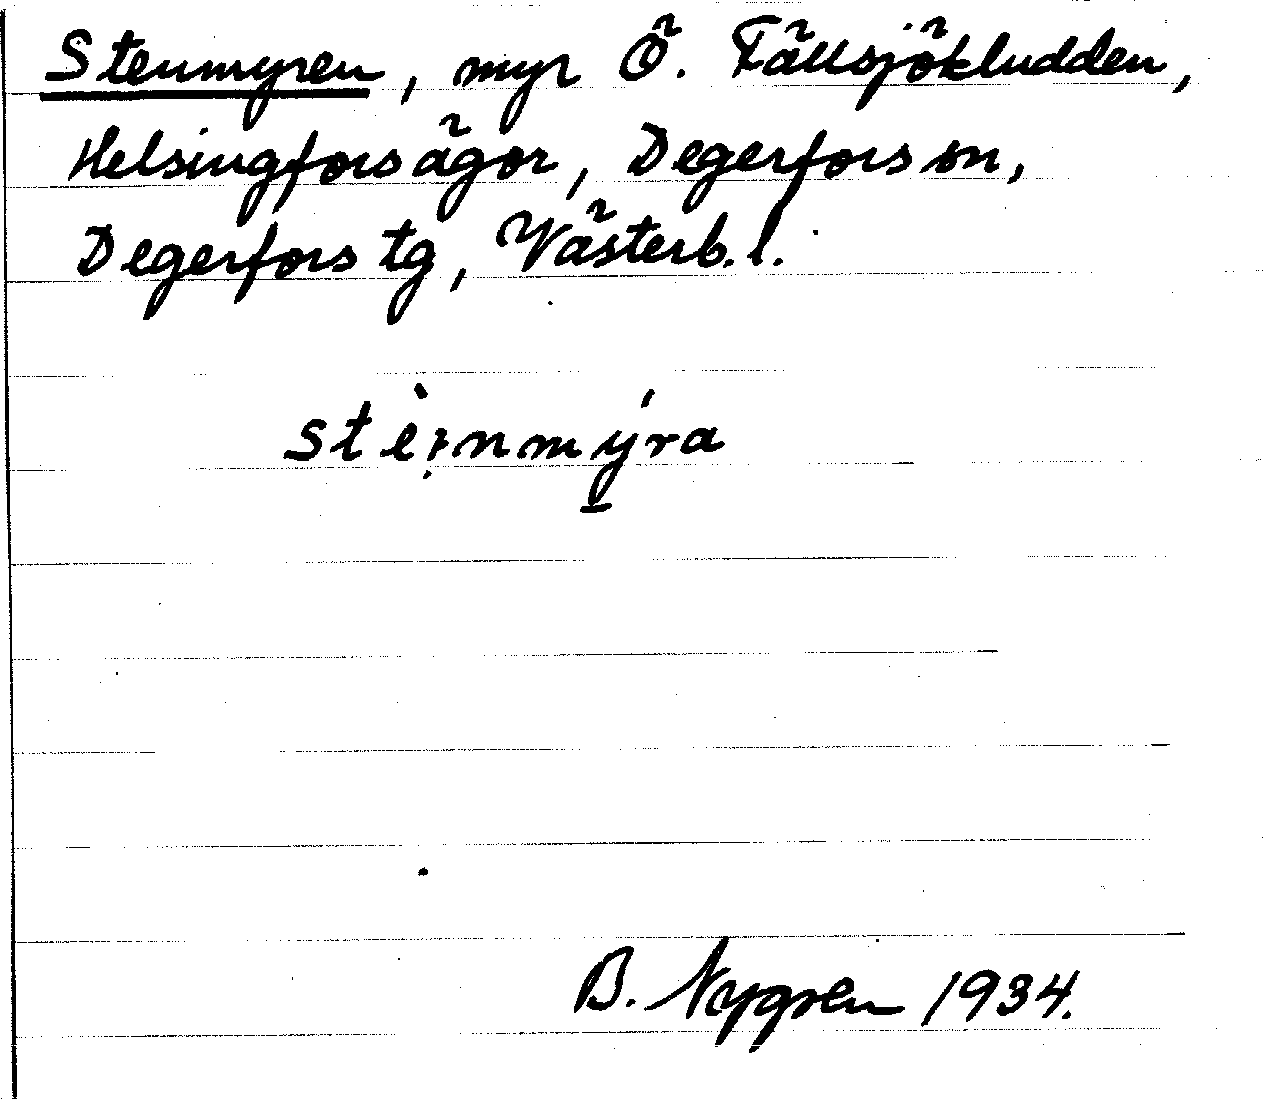 Stenmyren, myr Ö. Fällsjökludden,
Helsingfors ägor, Degerfors sn,
Degerfors tg, Västerb. l.
B. Nygren 1934.